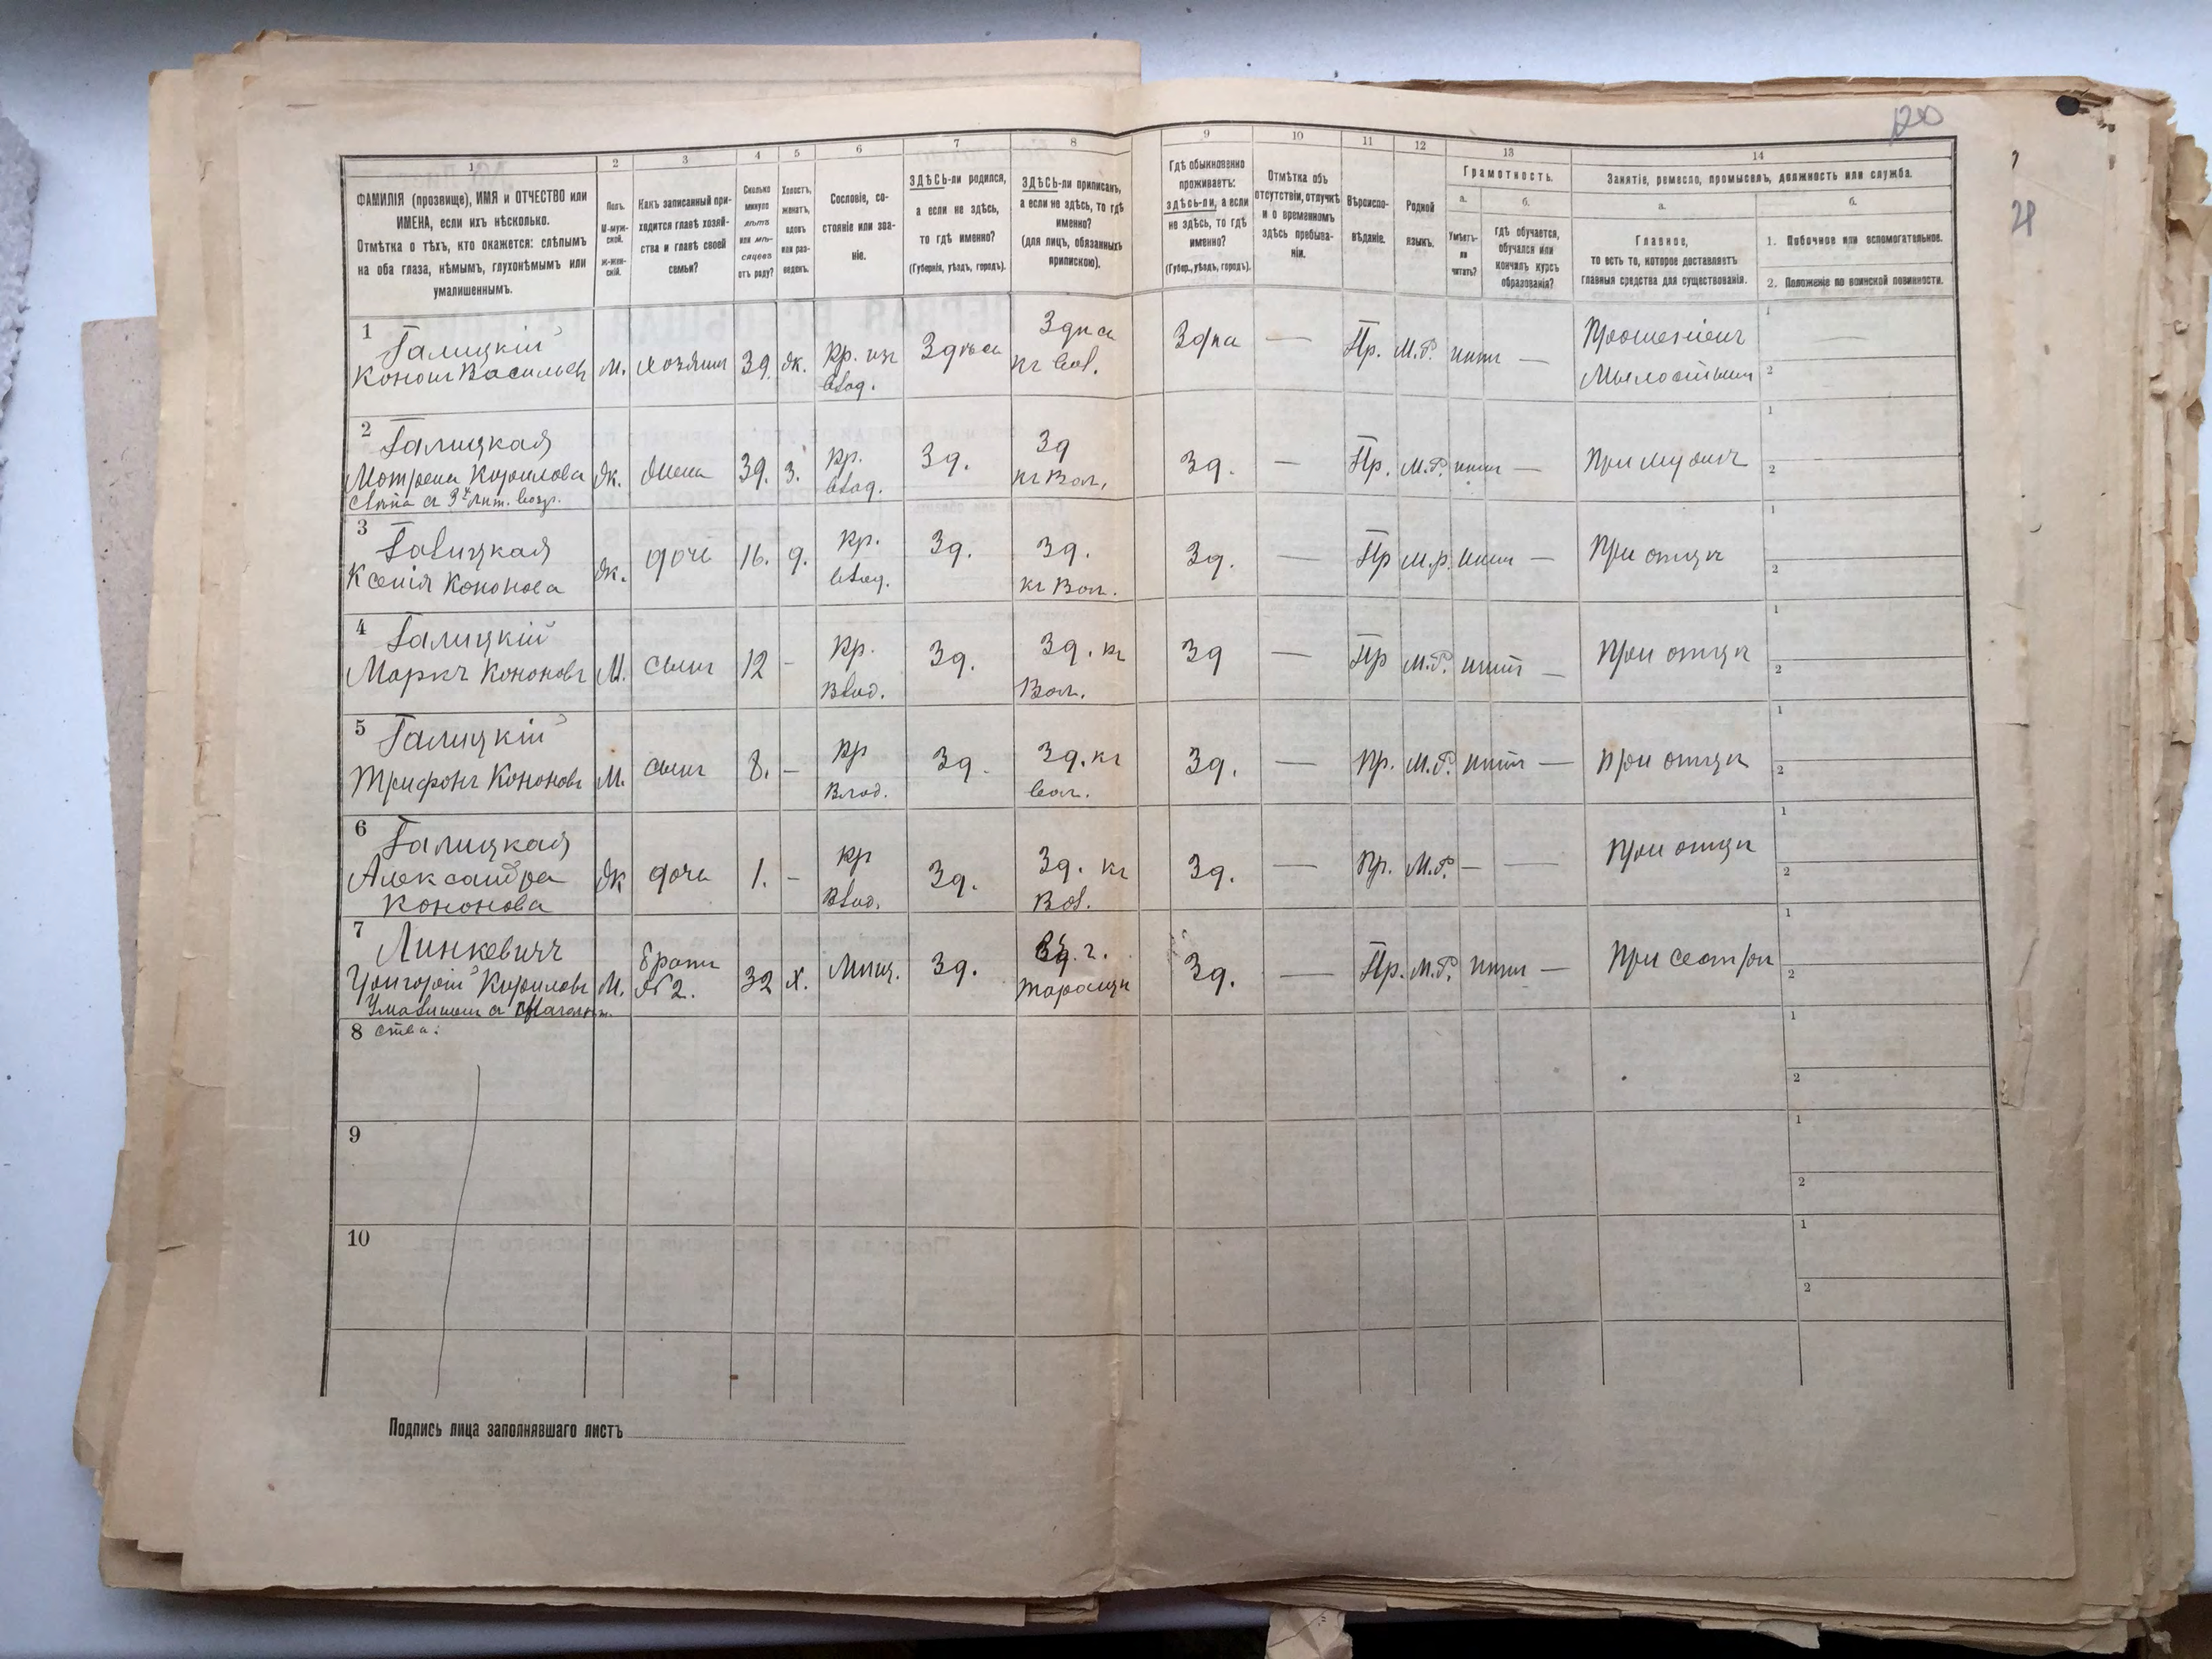 120
21
1 2 3 4 5 6 7 8 9 10 11 12 13 14
ФАМИЛІЯ (прозвище), ИМЯ и ОТЧЕСТВО или
ИМЕНА, если ихъ нѣсколько.
Отмѣтка о тѣхъ, кто окажется: слѣпымъ
на оба глаза, нѣмымъ, глухонѣмымъ или
умалишеннымъ.
Полъ.
М-муж-
ской.
Ж-жен-
скій.
Какъ записанный при-
ходится главѣ хозяй-
ства и главѣ своей
семьи?
Сколько
минуло
лѣтъ
или мѣ-
сяцевъ
отъ роду?
Холостъ,
женатъ,
вдовъ
или раз-
веденъ.
Сословіе, со-
стояніе или зва-
ніе.
ЗДѢСЬ-ли родился,
а если не здѣсь,
то гдѣ именно?
(Губернія, уѣздъ, городъ).
ЗДѢСЬ-ли приписанъ,
а если не здѣсь, то гдѣ
именно?
(для лицъ, обязанныхъ
припискою).
Гдѣ обыкновенно
проживаетъ:
здѣсь-ли, а если
не здѣсь, то гдѣ
именно?
(Губер., уѣздъ, городъ).
Отмѣтка объ
отсутствіи, отлучкѣ
и о временномъ
здѣсь пребыва-
ніи.
Вѣроиспо-
вѣданіе.
Родной
языкъ.
Грамотность.
а. б.
Умѣетъ-
ли
читать?
гдѣ обучается,
обучался или
кончилъ курсъ
образованія?
Занятіе, ремесло, промыселъ, должность или служба.
а. б.
Главное,
то есть то, которое доставляетъ
главныя средства для существованія.
1. Побочное или вспомогательное.
2. Положеніе по воинской повинности.
1
Галицкій
Кононъ Васильевъ
М. хозяинъ 39. ж. Кр. изъ
влад.
Здѣсь
Здѣсь
къ вол.
Здѣсь — Пр. М.Р. нѣтъ — Прошеніемъ
Милостыни
1 —
2
2
Галицкая
Мотрена Кирилова
Слѣпа съ 3х лѣт. возр.
Ж. жена 39. З. Кр.
влад.
Зд.
Зд
къ Вол.
Зд. — Пр. М.Р. нѣтъ — При мужѣ
1
2
3
Галицкая
Ксенія Кононова
Ж. дочь 16. д. Кр.
влад.
Зд.
Зд.
къ Вол.
Зд. — Пр М.р. нѣтъ — При отцѣ
1
2
4
Галицкій
Маркъ Кононовъ
М. сынъ 12 - Кр.
Влад.
Зд.
Зд. къ
Вол.
Зд — Пр М.Р. нѣтъ — При отцѣ
1
2
5
Галицкій
Трифонъ Кононовъ
М. сынъ 8. - Кр
Влад.
Зд.
Зд. къ
вол.
Зд. — Пр. М.Р. нѣтъ — При отцѣ
1
2
6
Галицкая
Александра
Кононова
Ж дочь 1. - Кр
Влад.
Зд.
Зд. къ
Вол.
Зд. — Пр. М.Р. — — При отцѣ
1
2
7
Линкевичъ
Григорій Кириловъ
М. братъ
№ 2.
32 Х. Мѣщ. Зд.
г.
Тараща
Зд. — Пр. М.Р. нѣтъ — При сестрѣ
1
2
8 ства.
1
2
9
1
2
10
1
2
Подпись лица заполнявшаго листъ